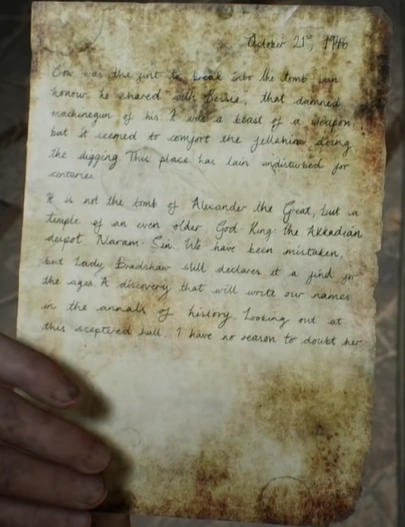 October 21st, 1946
was the first to break into the tomb an
honour he shared with Bessie, that damned
machinegun of his. It was a beast of a weapon,
but it seemed to comfort the fellahin doing
the digging. This place has lain undisturbed for
centuries.
It is not the tomb of Alexander the Great, but a
temple of an even older God King: the Akkadian
despot Naram-Sin. We have been mistaken,
but Lady Bradshaw still declares it a find for
the ages. A discovery that will write our names
in the annals of history. Looking out at
this sceptered hall, I have no reason to doubt her